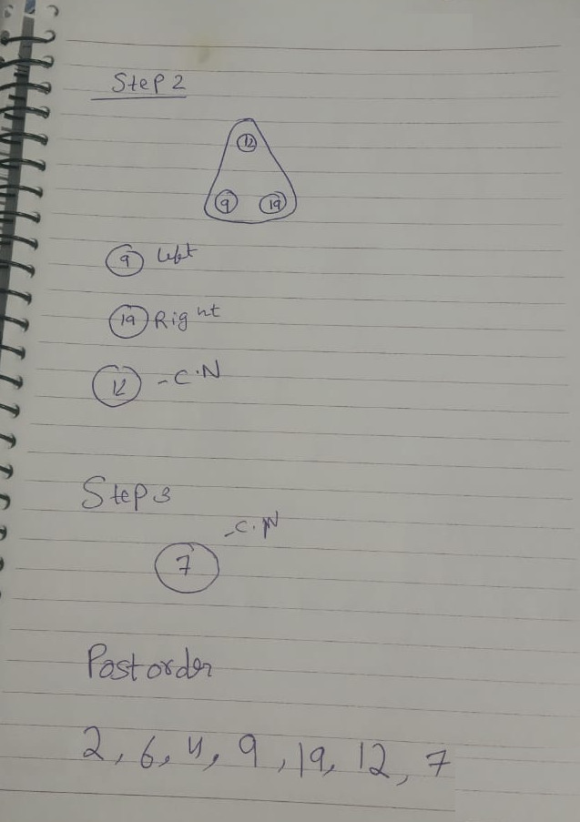 Step 2
12
9 19
9 Left
19 Right
12 - C.N
Step 3
- C.N
7
Postorder
2, 6, 4, 9, 19, 12, 7